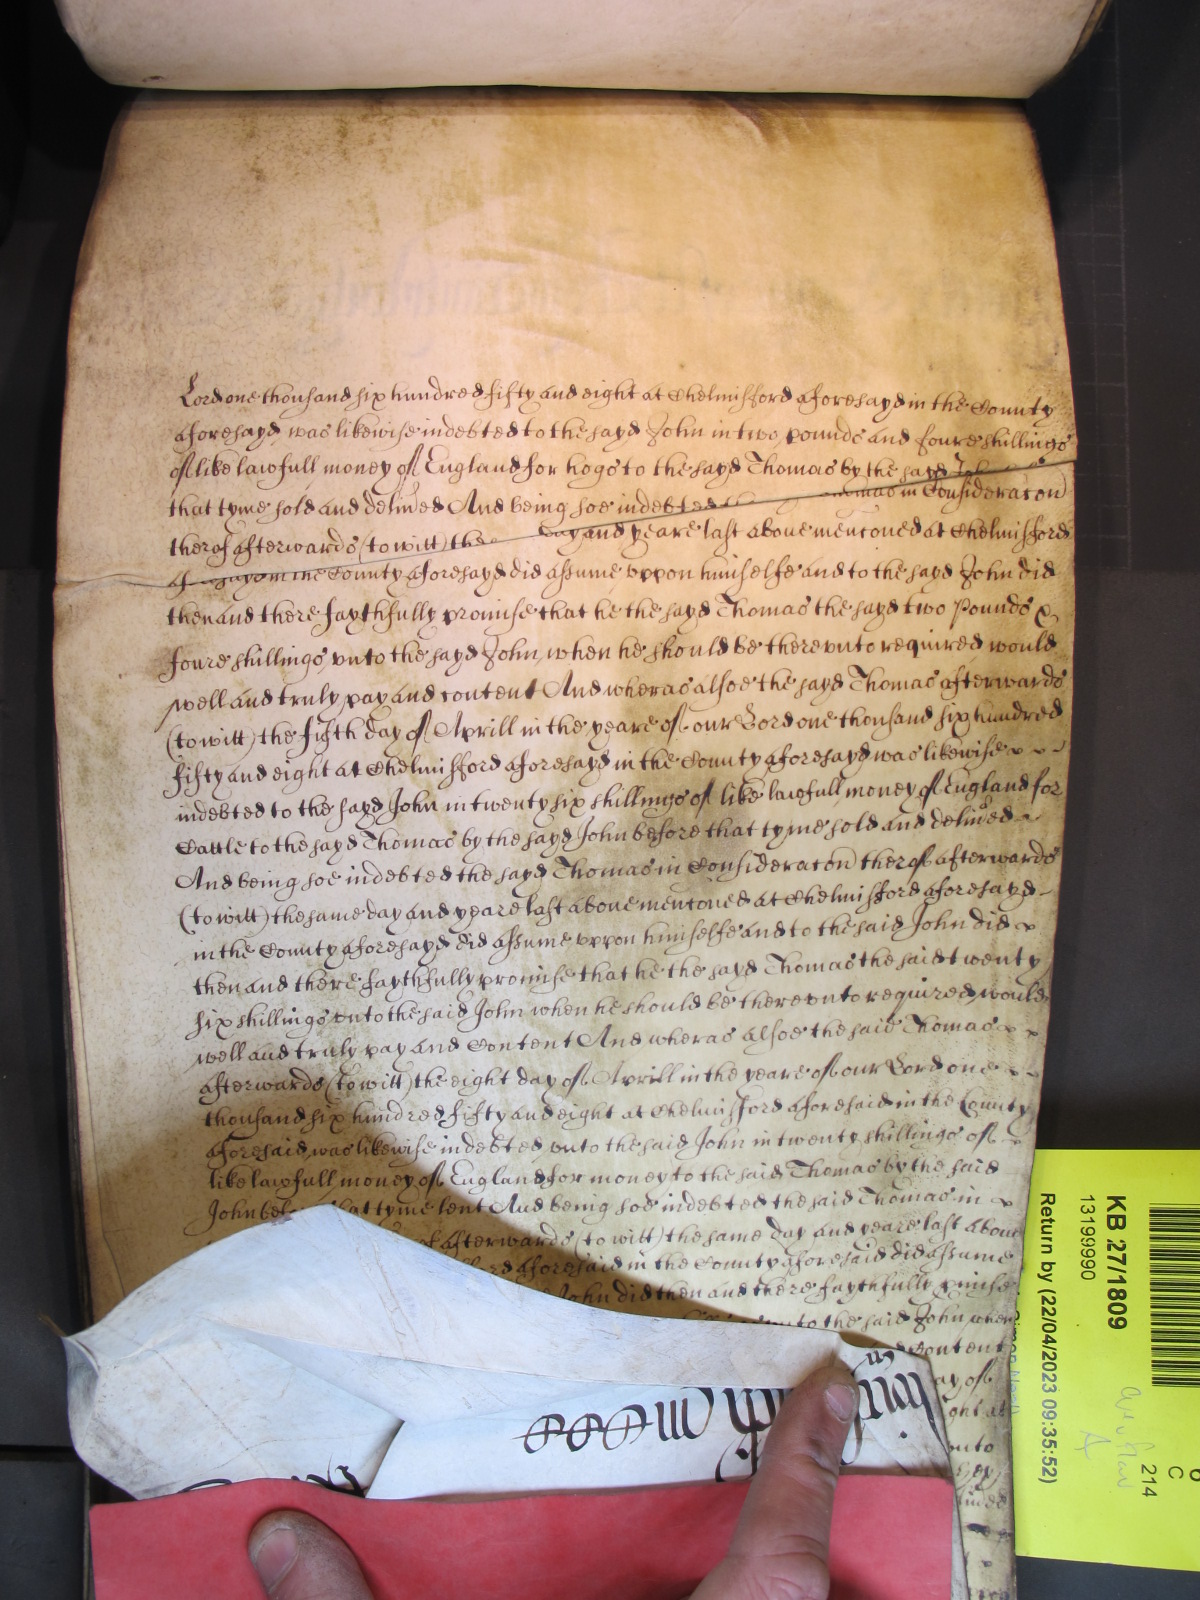 Lord one thousand six hundred fifty and eight at Chelmisford aforesayd in the County
aforesayd was likewise indebted to the sayd John in two pounds and foure shillings
of like lawfull money of England for hogs to the sayd Thomas by the sayd
that tyme sold and delived And being soe indebted in Consideracon
therof afterwards (to witt) the day and yeare last above mencioned at Chelmisford
in the County aforesayd did assume uppon himselfe and to the sayd John did
then and there faythfully promise that he the sayd Thomas the sayd two pounds &
foure shillings unto the sayd John when he should be thereunto required would
well and truly pay and content And wheras alsoe the sayd Thomas afterwards
(to witt) the fifth day of Aprill in the yeare of our Lord one thousand six hundred
fifty and eight at Chelmisford aforesayd in the County aforesayd was likewise
indebted to the sayd John in twenty six shillings of like lawfull money of England for
Cattle to the sayd Thomas by the sayd John before that tyme sold and delived
And being soe indebted the sayd Thomas in Consideracon therof afterwards
(to witt) the same day and yeare last above mencioned at Chelmisford aforesayd
in the County aforesayd did assume uppon himselfe and to the said John did
then and there faythfully promise that he the sayd Thomas the said twenty
six shillings unto the said John when he should be thereunto required would
well and truly pay and Content And wheras alsoe the said Thomas
afterwards (to witt) the eight day of Aprill in the yeare of our Lord one
thousand six hundred fifty and eight at Chelmisford aforesaid in the County
aforesaid was likewise indebted unto the said John in twenty shillings of
like lawfull money of England for money to the said Thomas by the said
John that tyme lent And being soe indebted the said Thomas in
afterwards (to witt) the same day and yeare last above
aforesaid in the County aforesaid did assume
John did then and there faythfully pmise
unto the said John when
Content
day of
at
unto
KB 27/1809
13199990
Return by (22/04/2023 09:35:52)
214
C